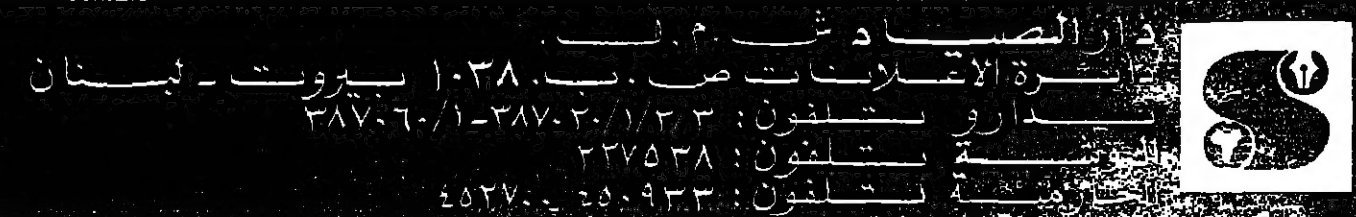 دار الصياد ش.م.ل.
دائرة الاعلانات ص.ب. ١٠٣٨ بيروت - لبنان
بدارو تلفون: ٣٨٧٠٢٠/١/٢/٣-٣٨٧٠٦٠/١
تلفون: ٢٢٧٥٣٨
الحازمية تلفون: ٤٥٠٩٣٣ - ٤٥٢٧٠٠